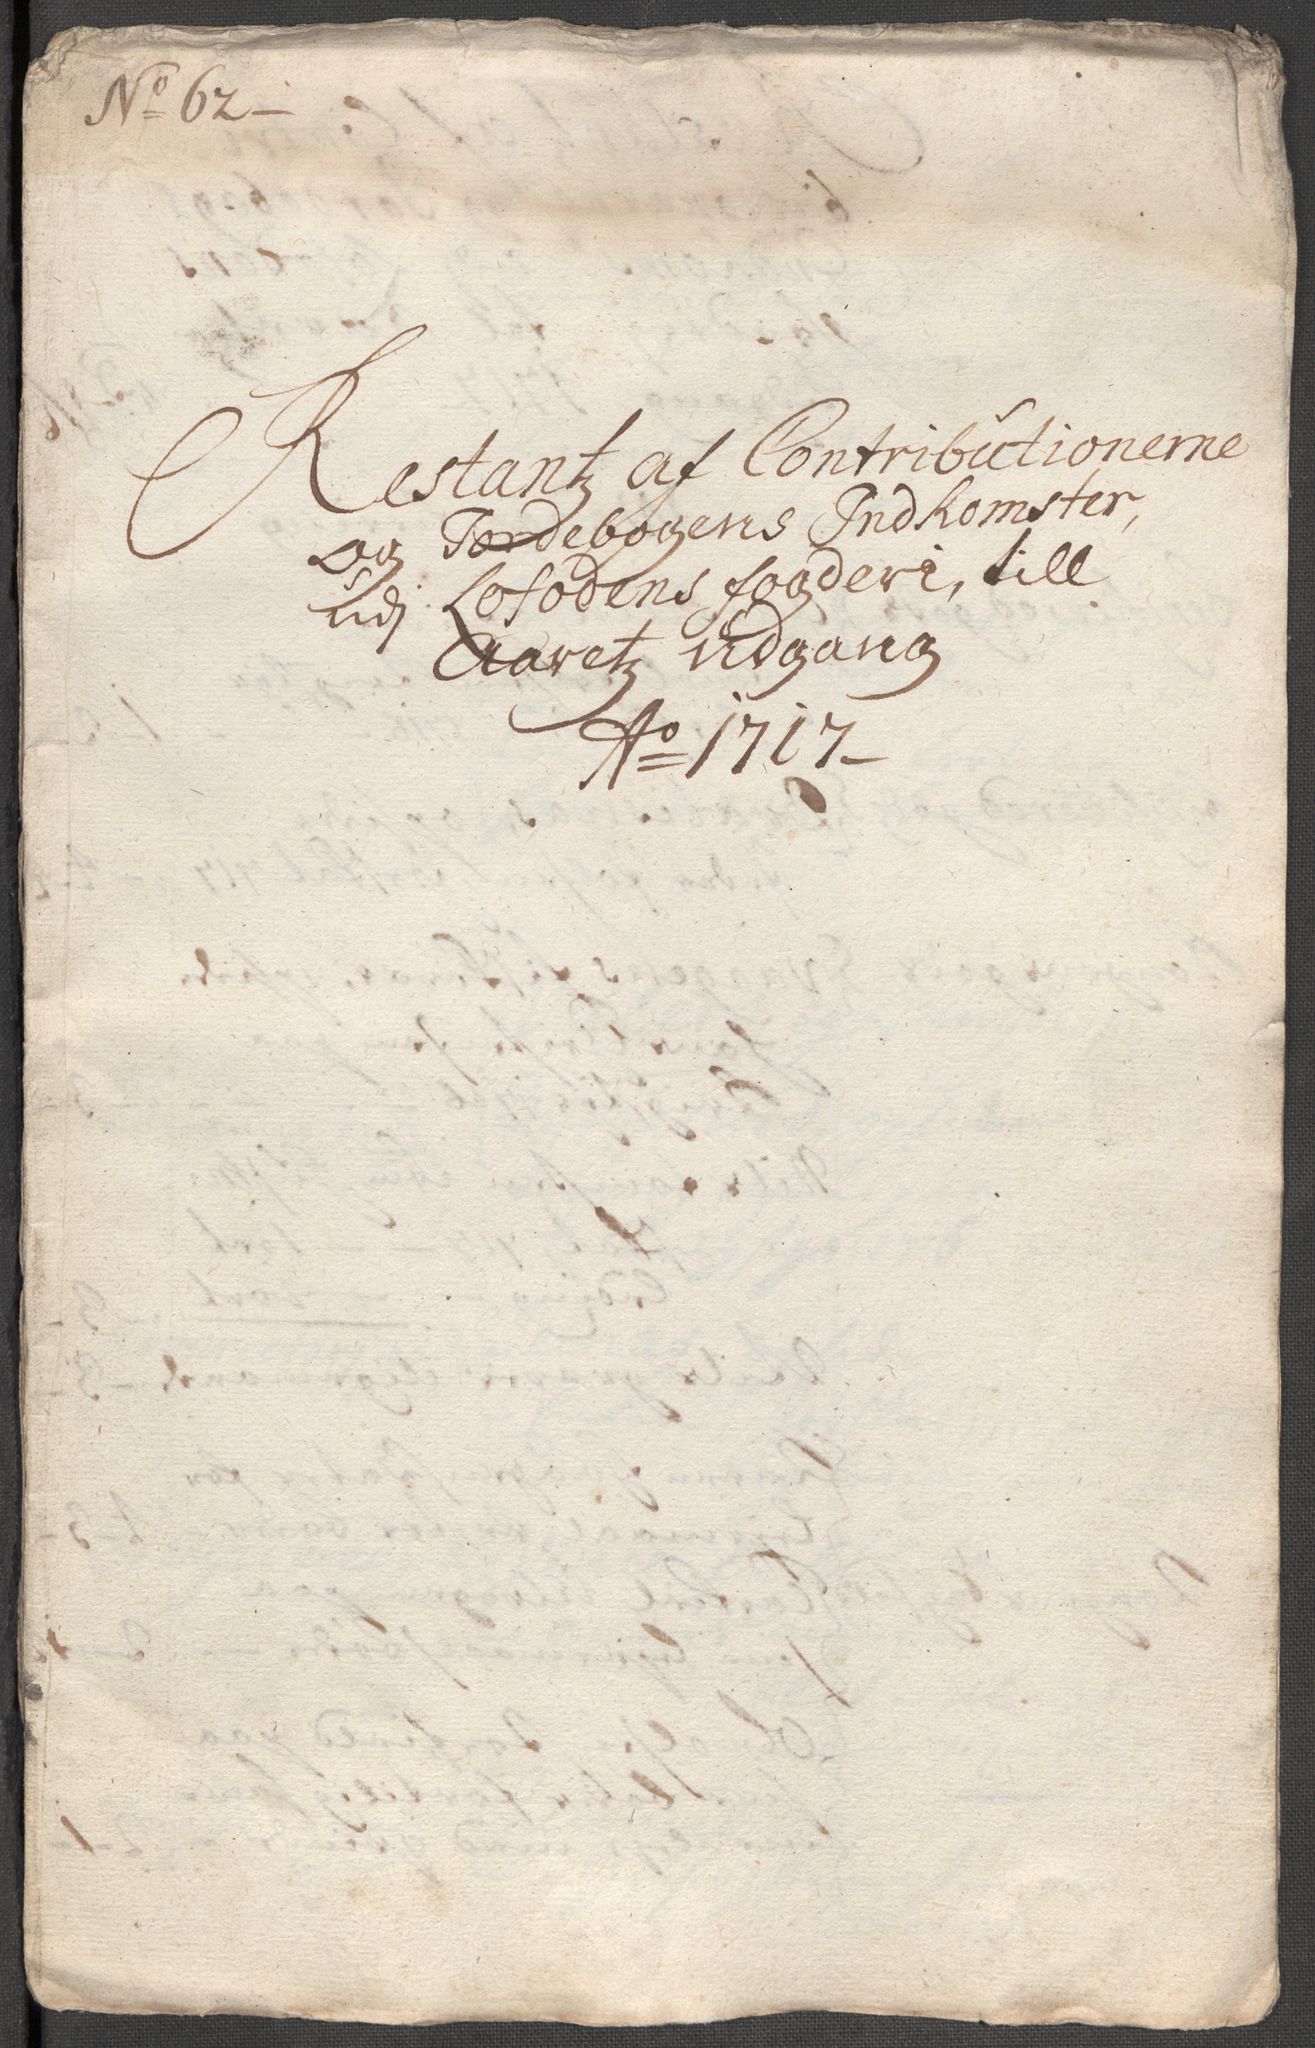 No 62
Restantz af Contributionerne
og Jordebogens Indkomster,
udj Lofodens fogderi, till
Aaretz udgang
Ao 1717